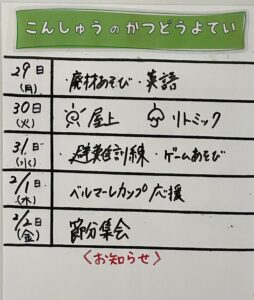 こんしゅうのかつどうよてい
29日(月) ・廃材あそび・英語
30日(火) 屋上 リトミック
31日(水) ・避難訓練・ゲームあそび
2/1日(木) ベルマーレカップ応援
2/2日(金) 節分集会
<お知らせ>